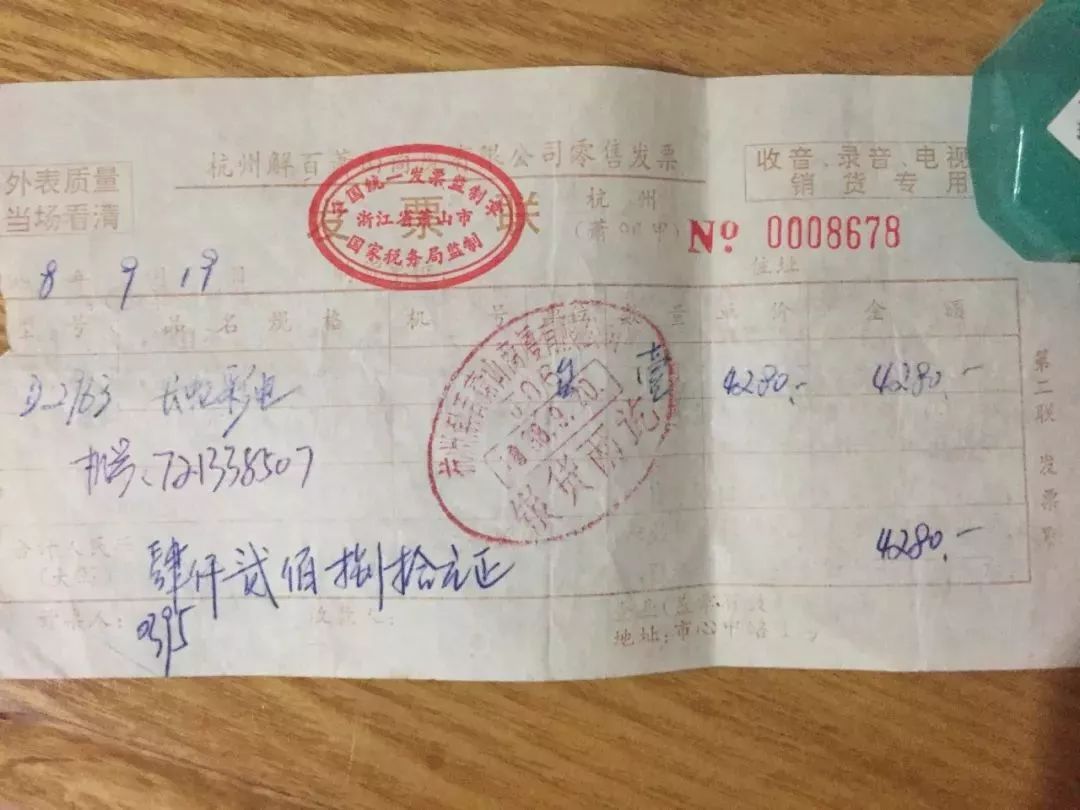 杭州解百萧山商厦有限公司零售发票
外表质量
当场看清
收音、录音、电视
销货专用
中国统一发票监制章
浙江省萧山市
国家税务局监制
发票联
杭州
№ 0008678
住址
8年9月19日
型号 品名规格 机号 单位 数量 单价 金额
长虹彩电 台 壹 4280.- 4280.-
机号、721338507
银货两讫
第二联 发票
4280.-
合计人民币
(大写)
肆仟贰佰捌拾元正
收款人:
0395
地址:市心中路